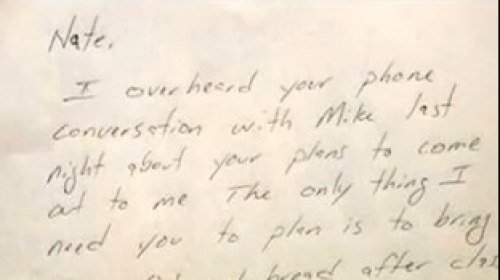 Nate.
I overheard your phone
conversation with Mike last
night about your plans to come
out to me The only thing I
need you to plan is to bring
bread after clas